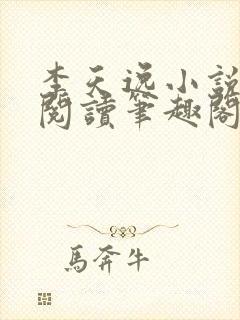 李天逸小說
閱讀筆趣閣
馬奔牛